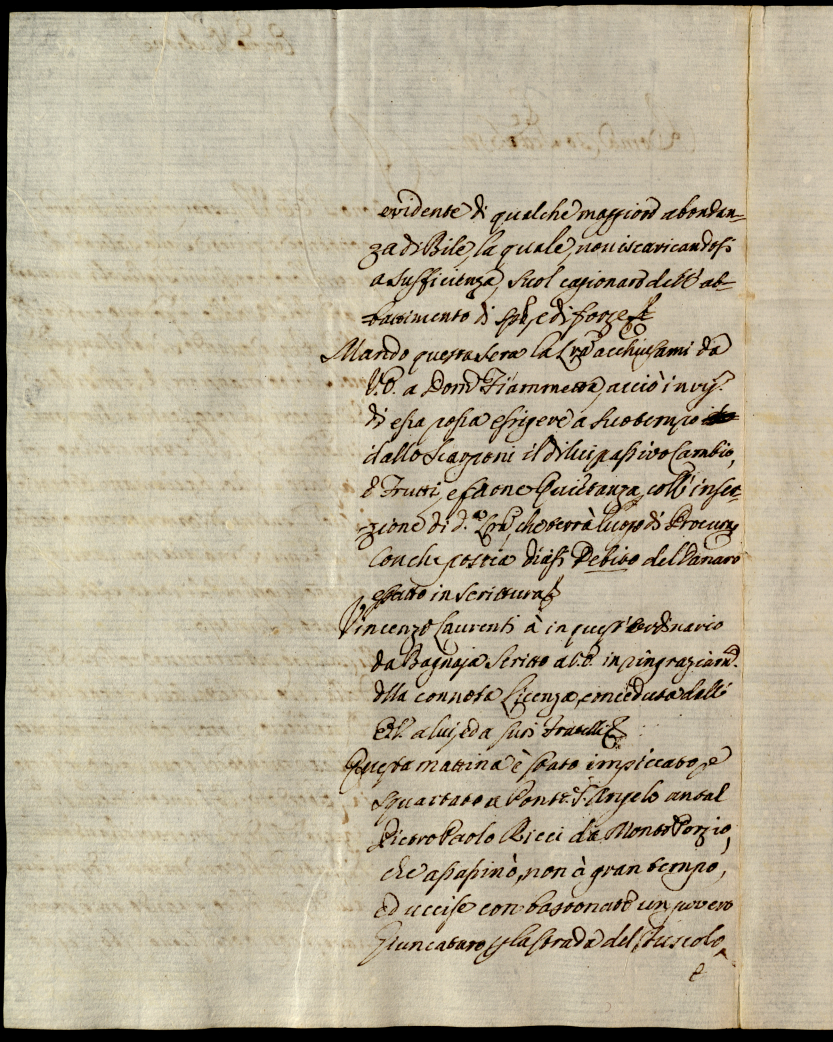 evidente di qualche maggiore abondan-
za di Bile, la quale, non iscaricandosi
a sufficienza, suol cagionare dett' ab-
battimento di e di forze
Mando questa sera la acchiusami da
V.S. a Fiammetta, acciò in
di essa possa esigere a suo tempo
dallo Scarponi il di lui passivo Cambio,
e frutti, e farne Quietanza, coll' inser-
zione di d.ª che terrà luogo di
con che postia diasi Debito del Danaro
esatto in Scrittura
Vincenzo Laurenti à in quest' ordinario
da Bagnaja scritto a V.S. in ringraziam.º
della connota Licenza, conceduta dall'
a lui, ed a suoi Fratelli
Questa mattina è stato impiccato, e
squartato a Ponte S. Angelo un tal
Pietro Paolo Ricci da Monte Porzio,
che assassinò, non à gran tempo,
ed uccise con bastonate un povero
Giuncataro p la strada del Tuscolo,
e